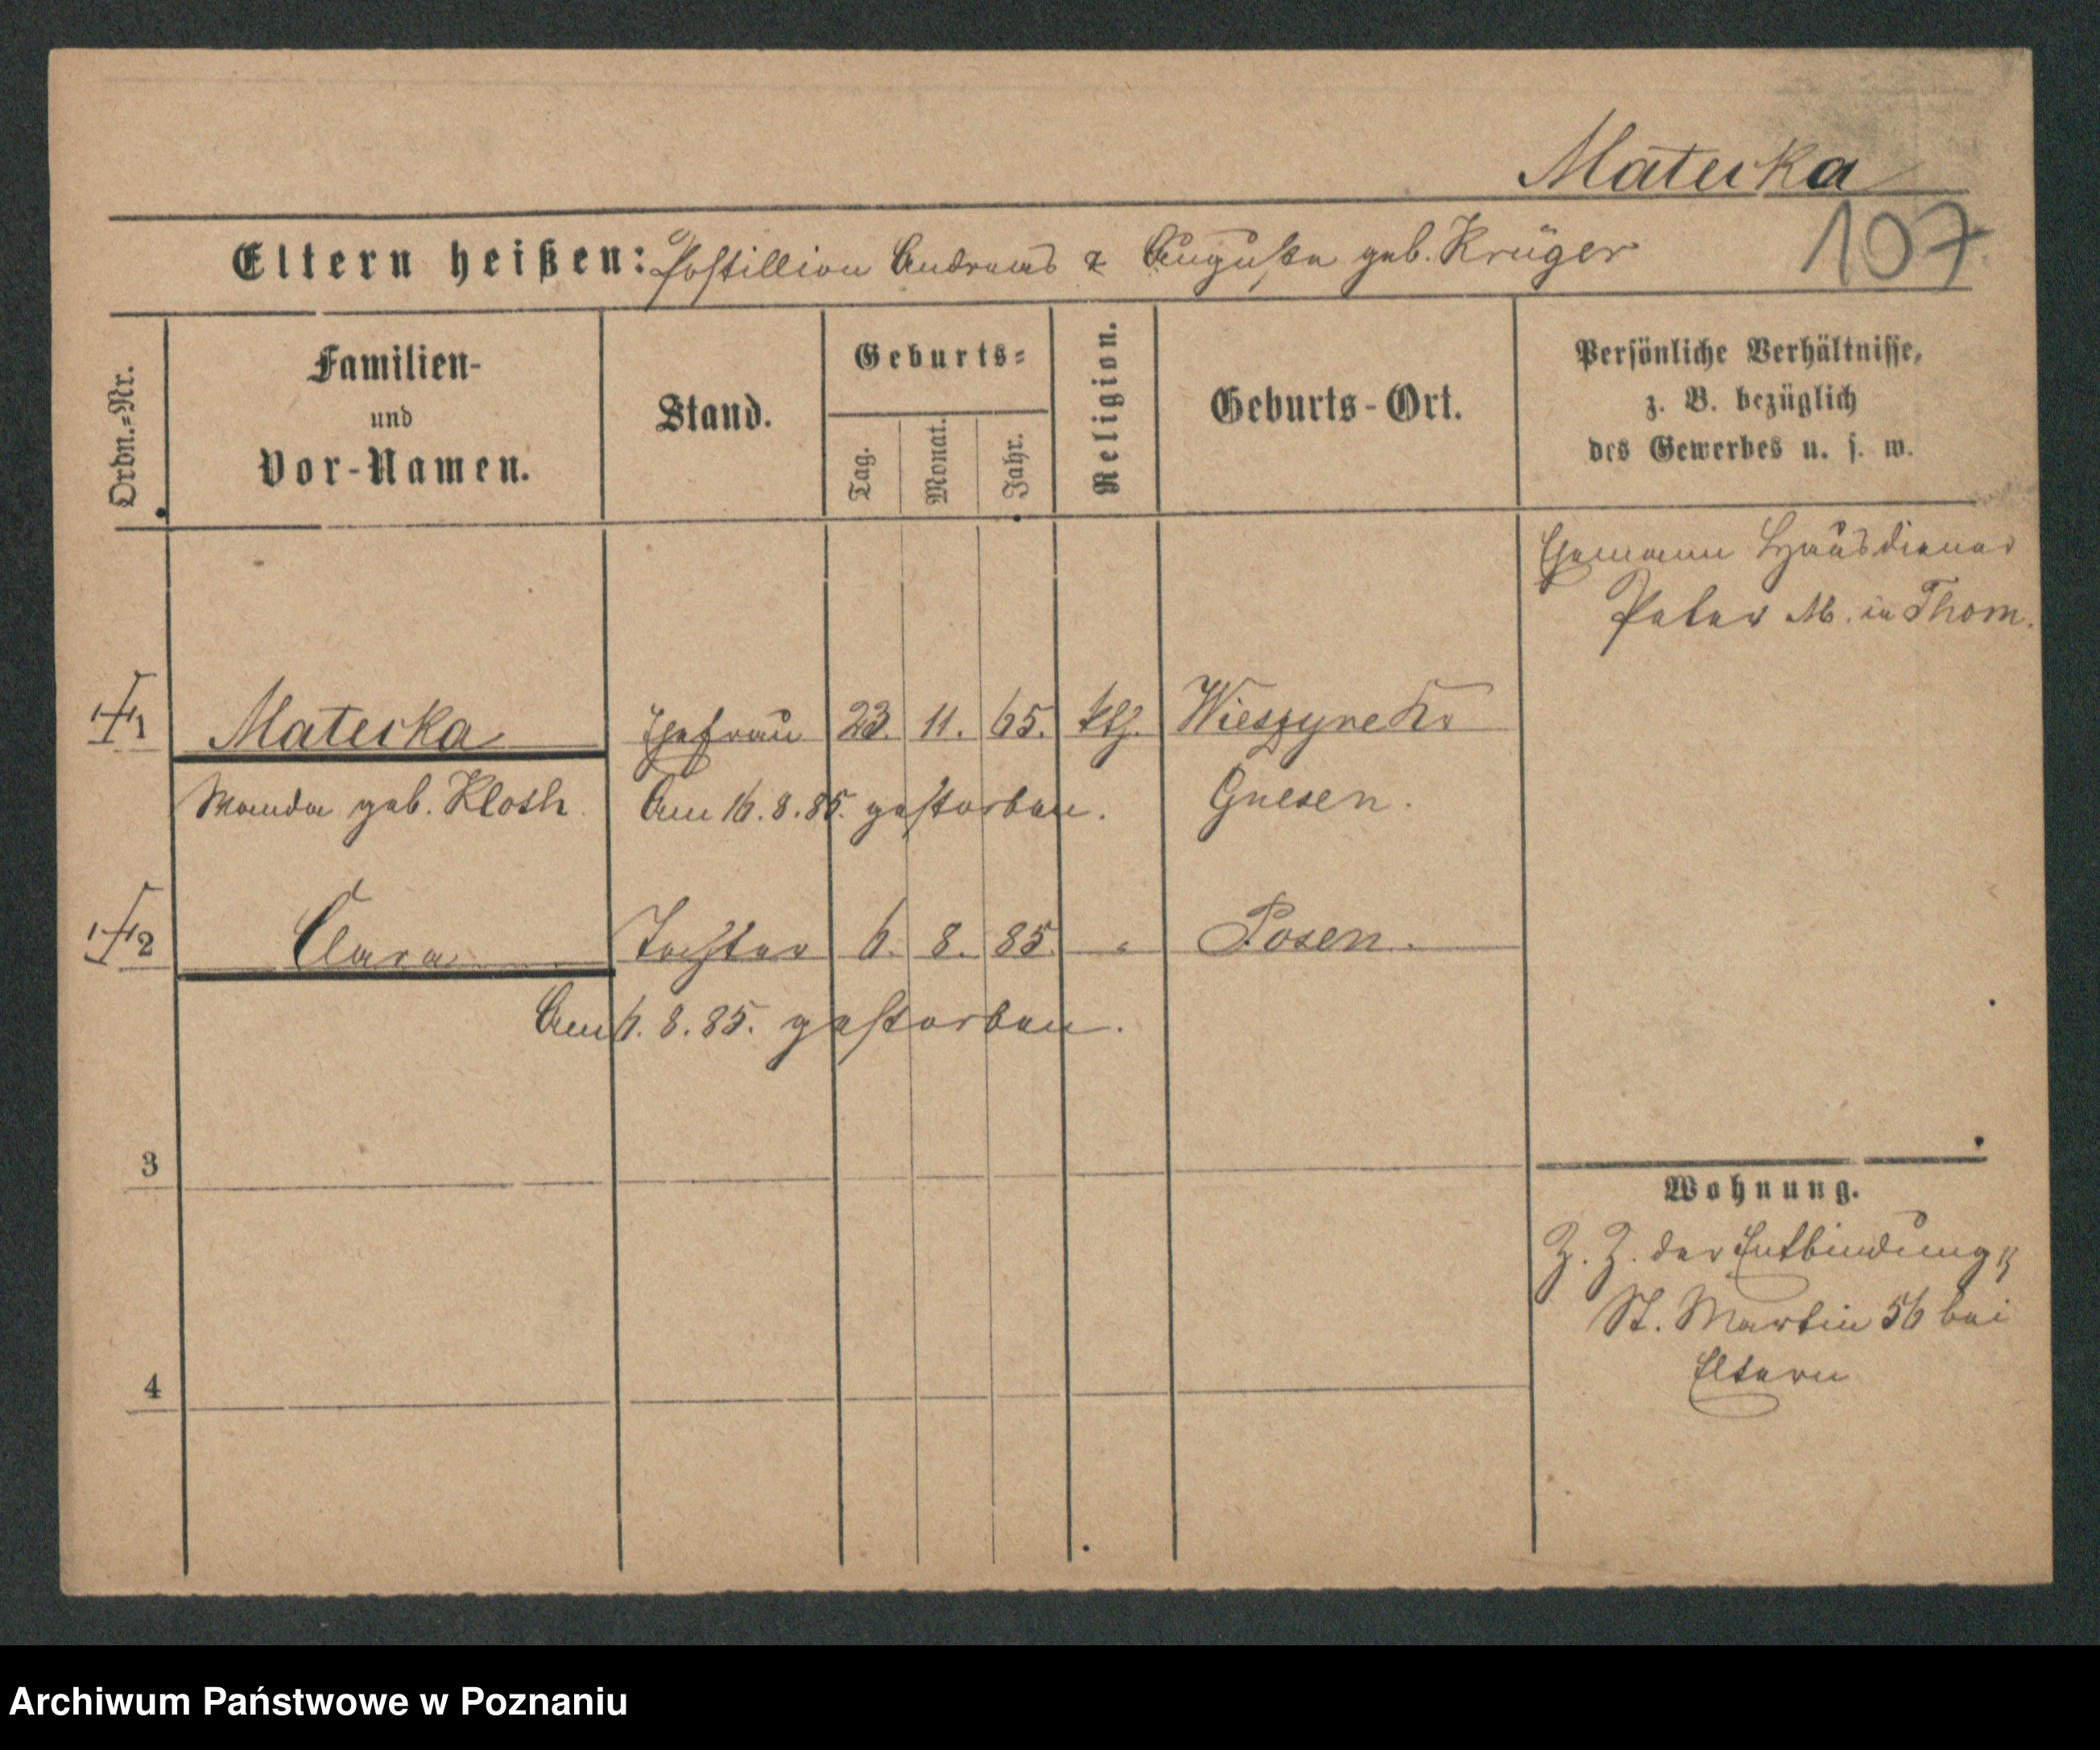 Mateika
107
Eltern heißen: Postillion Andreas & Auguste geb. Krüger
Ordn.-Nr.
Familien-
und
Vor-Namen.
Stand.
Geburts-
Tag.
Monat.
Jahr.
Religion.
Geburts-Ort.
Persönliche Verhältnisse,
z. B. bezüglich
des Gewerbes u. s. w.
Ehemann Haushdiener
Peter M. in Thorn.
1 Mateika Ehefrau 23. 11. 65. kth.
Wanda geb. Klosh Am 16. 8. 85. gestorben. Gnesen.
2 Clara Tochter 6. 8. 85. " Posen.
Am 6. 8. 85. gestorben.
3
Wohnung.
Z. Z. der Entbindung
St. Martin 56 bei
Eltern
4
Archiwum Państwowe w Poznaniu